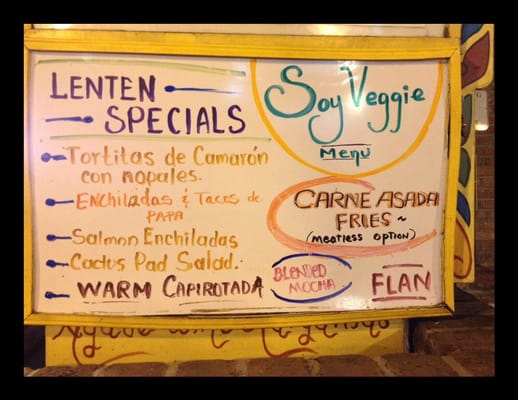 LENTEN
SPECIALS
Tortitas de Camarón
con nopales.
ENCHILADAS & TACOS de
PAPA
Salmon Enchiladas
Cactus Pad Salad.
WARM CAPIROTADA
Soy Veggie
Menu
CARNE ASADA
FRIES ~
(MEATLESS OPTION)
BLENDED
MOCHA
FLAN